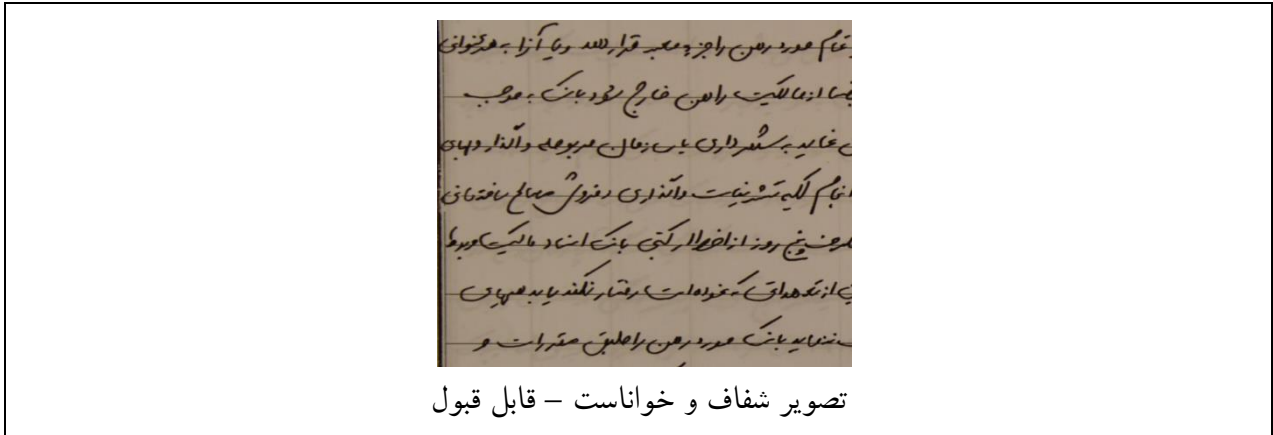 تمام مورد رهن را جزء به جزء قرار دهد و یا آنرا به هر عنوانی
از مالکیت راهن خارج شود بانک به موجب
نماید به شهرداری یا سازمان مربوطه و واگذاریهای
انجام کلیه تشریفات واگذاری و فروش مصالح ساختمانی
ظرف پنج روز از اخطار کتبی بانک اسناد مالکیت مربوط
از تعهداتی که نموده است رفتار نکند یا بدهیهای
ننماید بانک مورد رهن را طبق مقررات و
تصویر شفاف و خواناست – قابل قبول